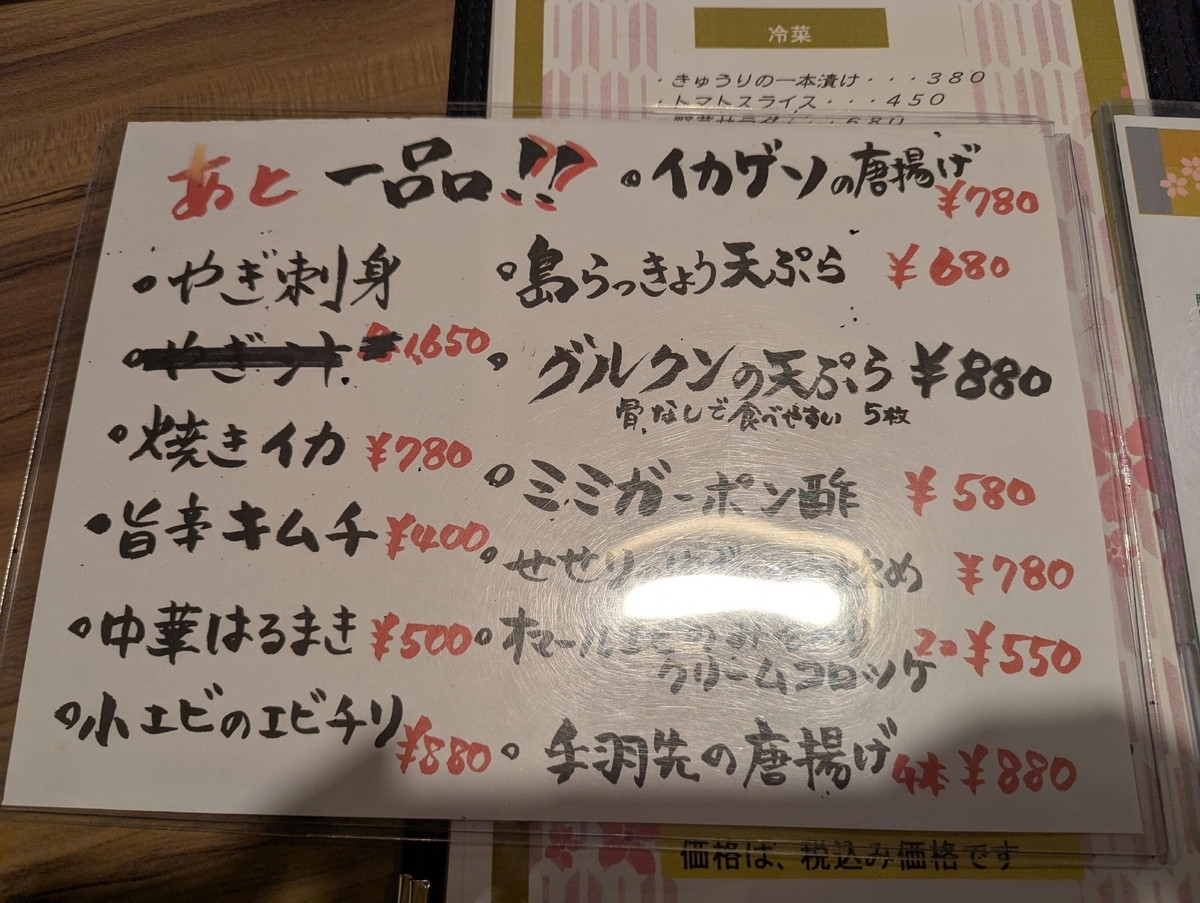 冷菜
・きゅうりの一本漬け・・・380
・トマトスライス・・・450
あと一品!!
・やぎ刺身
¥1,650
・焼きイカ ¥780
・旨辛キムチ ¥400
・中華はるまき ¥500
・小エビのエビチリ ¥880
・イカゲソの唐揚げ ¥780
・島らっきょう天ぷら ¥680
・グルクンの天ぷら ¥880
骨なしで食べやすい 5枚
・ミミガーポン酢 ¥580
・せせり ¥780
・オマール 2コ ¥550
クリームコロッケ
・手羽先の唐揚げ 4本 ¥880
価格は、税込み価格です